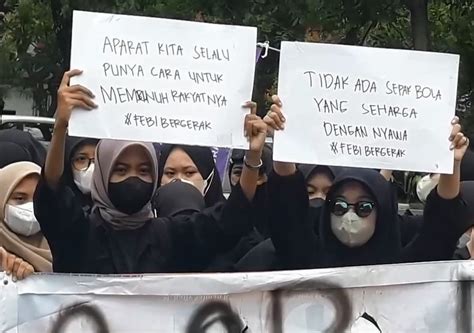 APARAT KITA SELALU
PUNYA CARA UNTUK
MEMBUNUH RAKYATNYA
#FEBIBERGERAK
TIDAK ADA SEPAK BOLA
YANG SEHARGA
DENGAN NYAWA
#FEBIBERGERAK